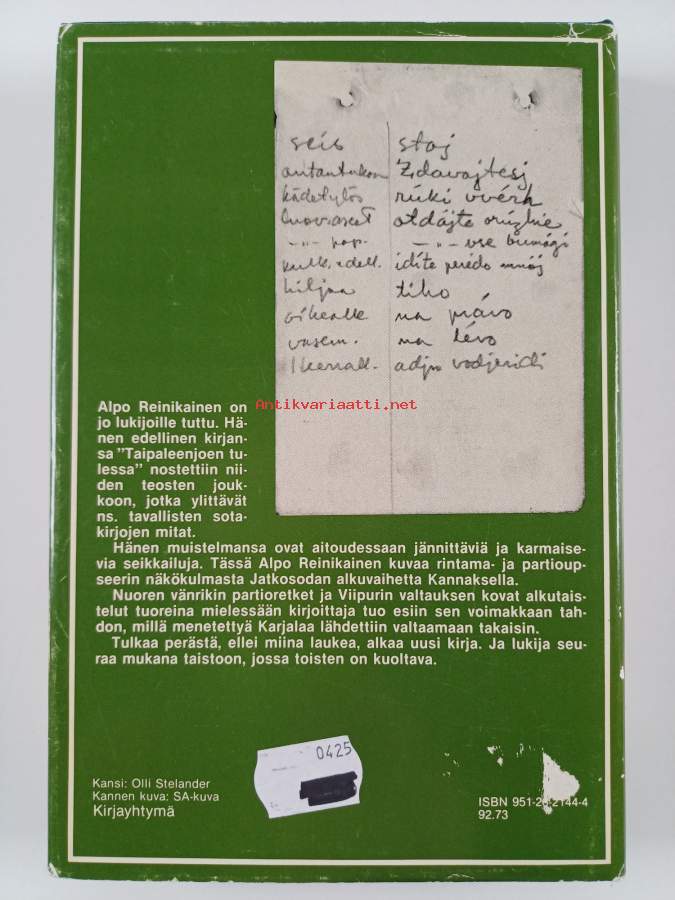 seis stoj
antautukaa Zdavajtesj
kädet ylös rúki vvérh
luov. aseet otdájte orúzhie
-"- pap. -"- vse bumági
kulk. edell. idíte perédo mnój
hiljaa tiho
oikealle na právo
vasem. na lévo
1 kerrall.
Antikvariaatti.net
Alpo Reinikainen on
jo lukijoille tuttu. Hä-
nen edellinen kirjan-
sa "Taipaleenjoen tu-
lessa" nostettiin nii-
den teosten jouk-
koon, jotka ylittävät
ns. tavallisten sota-
kirjojen mitat.
Hänen muistelmansa ovat aitoudessaan jännittäviä ja karmaise-
via seikkailuja. Tässä Alpo Reinikainen kuvaa rintama- ja partioup-
seerin näkökulmasta Jatkosodan alkuvaihetta Kannaksella.
Nuoren vänrikin partioretket ja Viipurin valtauksen kovat alkutais-
telut tuoreina mielessään kirjoittaja tuo esiin sen voimakkaan tah-
don, millä menetettyä Karjalaa lähdettiin valtaamaan takaisin.
Tulkaa perästä, ellei miina laukea, alkaa uusi kirja. Ja lukija seu-
raa mukana taistoon, jossa toisten on kuoltava.
0425
Kansi: Olli Stelander
Kannen kuva: SA-kuva
Kirjayhtymä
ISBN 951-26-2144-4
92.73